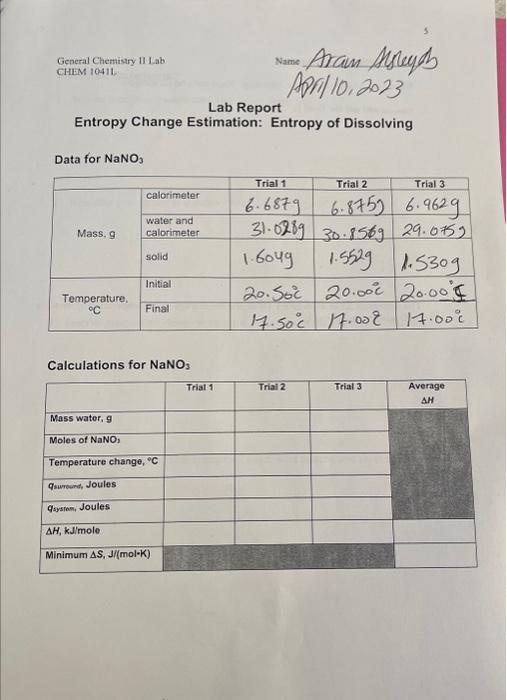 5
General Chemistry II Lab
CHEM 1041L
Name Aram
April 10, 2023
Lab Report
Entropy Change Estimation: Entropy of Dissolving
Data for NaNO₃
Trial 1 Trial 2 Trial 3
Mass, g
calorimeter 6.687g 6.875g 6.962g
water and calorimeter 31.028g 30.856g 29.075g
solid 1.604g 1.552g 1.530g
Temperature, °C
Initial 20.50°C 20.00°C 20.00°C
Final 17.50°C 17.00°C 17.00°C
Calculations for NaNO₃
Trial 1 Trial 2 Trial 3 Average ΔH
Mass water, g
Moles of NaNO₃
Temperature change, °C
qsurround, Joules
qsystem, Joules
ΔH, kJ/mole
Minimum ΔS, J/(mol•K)